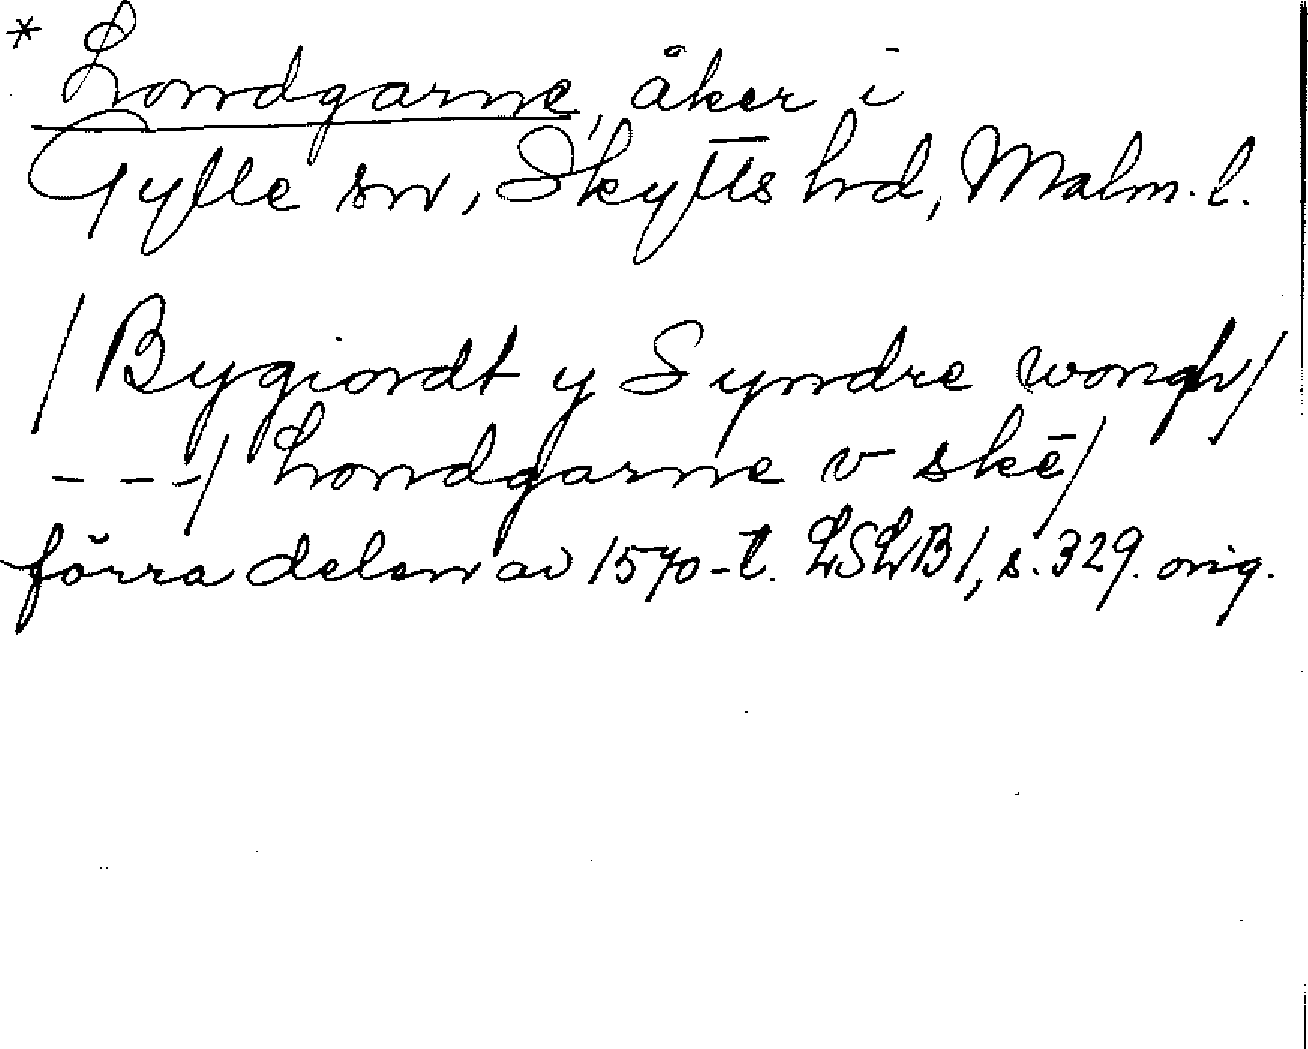 * Londgarne, åker i
Gylle sn, Skytts hd, Malm. l.
/Bygiordt y Syndre wongh/
---/ Londgarne v skē/
förra delen av 1570-t. LSLB1, s. 329. orig.